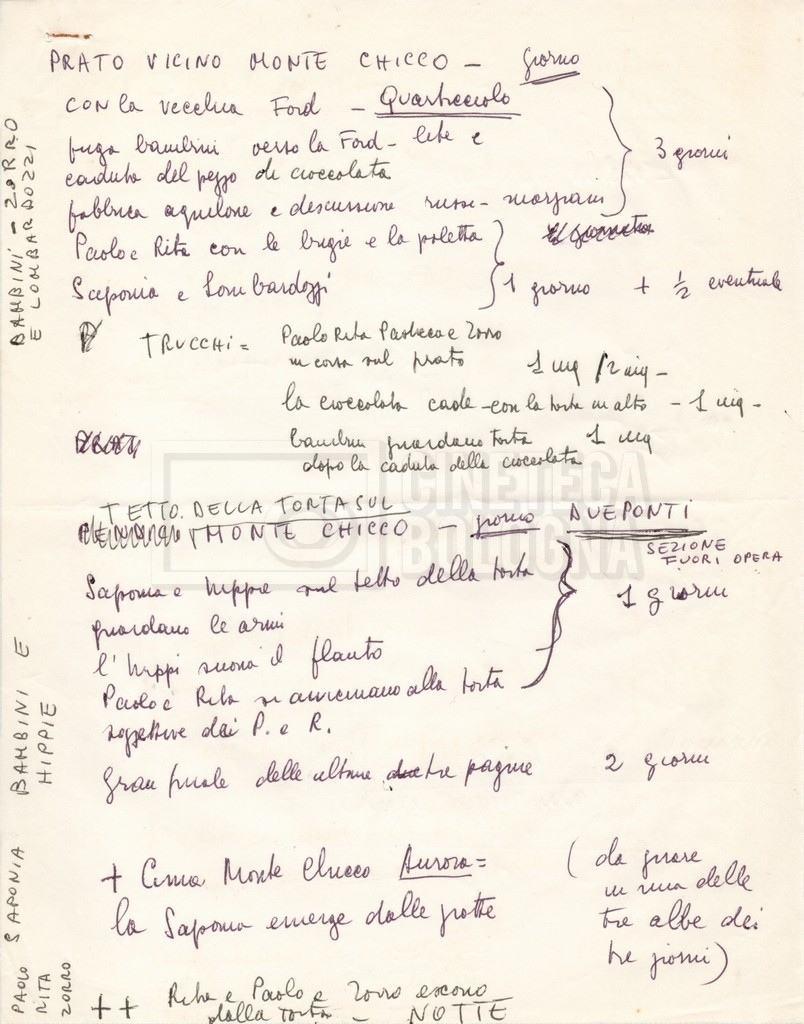 PRATO VICINO MONTE CHICCO - giorno
CON la vecchia Ford - Quarticciolo
fuga bambini verso la Ford - lite e
caduta del pezzo di cioccolata
fabbrica aquilone e discussione russi - marziani
3 giorni
Paolo e Rita con le bugie e la paletta
Saponia e Lombardozzi
1 giorno + ½ eventuale
TRUCCHI = Paolo Rita Pacheca e Zorro
in corsa sul prato 1 inq / 2 inq -
la cioccolata cade - con la torta in alto - 1 inq -
bambini guardano torta 1 inq
dopo la caduta della cioccolata
TETTO DELLA TORTA SUL
MONTE CHICCO - giorno DUEPONTI
SEZIONE
FUORI OPERA
Saponia e hippie sul tetto della torta
guardano le armi
l'hippi suona il flauto
Paolo e Rita si avvicinano alla torta
soggettive dei P. e R.
1 giorni
Gran finale delle ultime tre pagine 2 giorni
+ Cima Monte Chicco Aurora =
la Saponia emerge dalle grotte
(da girare
in una delle
tre albe dei
tre giorni)
++ Rita e Paolo e Zorro escono
dalla torta - NOTTE
BAMBINI - ZORRO
E LOMBARDOZZI
BAMBINI E
HIPPIE
PAOLO SAPONIA
RITA
ZORRO
CINETECA
BOLOGNA